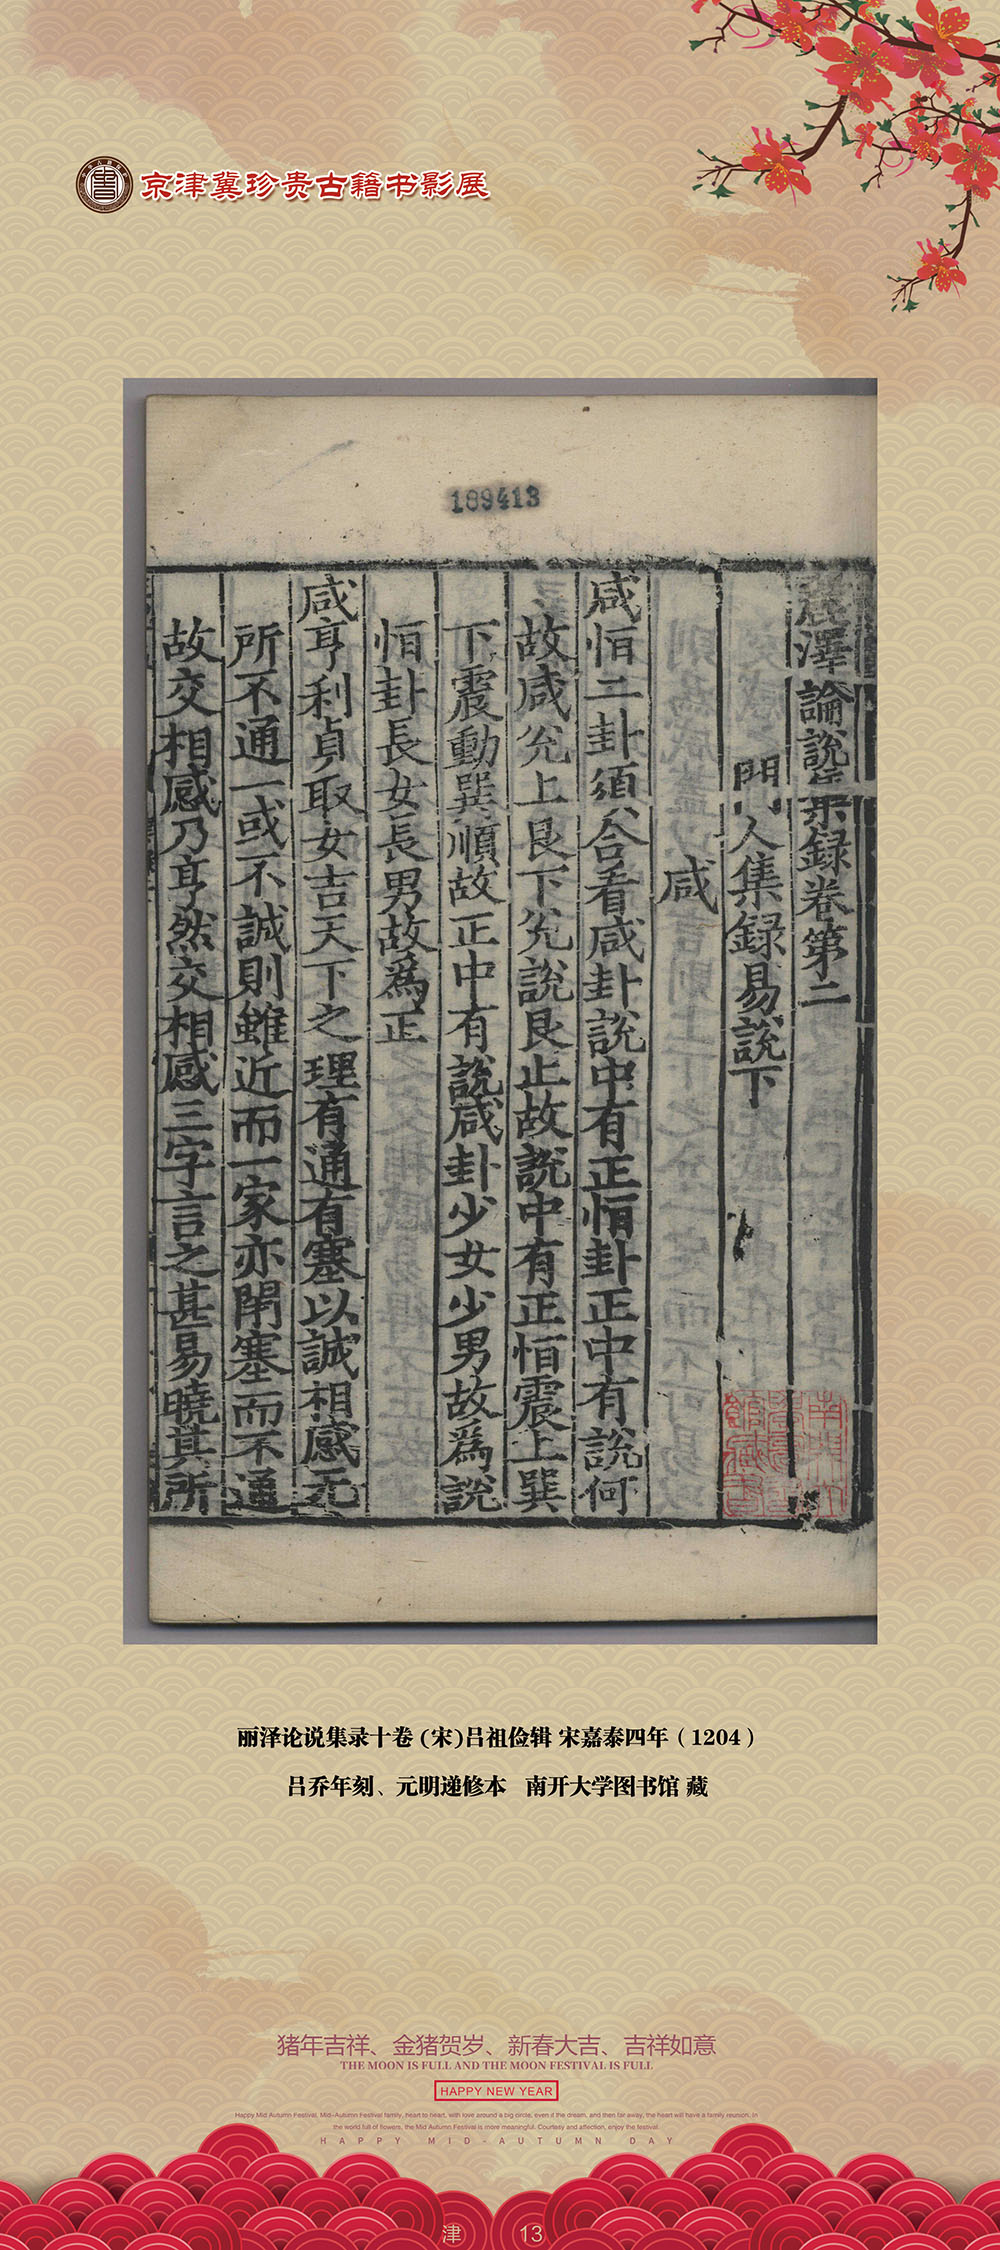 京津冀珍贵古籍书影展
189413
麗澤論說集録卷第二
門人集録易說下
咸
咸恒二卦須合看咸卦說中有正恒卦正中有說何
故咸兊上艮下兊說艮止故說中有正恒震上巽
下震動巽順故正中有說咸卦少女少男故爲說
恒卦長女長男故爲正
咸亨利貞取女吉天下之理有通有塞以誠相感无
所不通一或不誠則雖近而一家亦閉塞而不通
故交相感乃亨然交相感三字言之甚易曉其所
丽泽论说集录十卷 (宋)吕祖俭辑 宋嘉泰四年（1204）
吕乔年刻、元明递修本 南开大学图书馆 藏
猪年吉祥、金猪贺岁、新春大吉、吉祥如意
THE MOON IS FULL AND THE MOON FESTIVAL IS FULL
HAPPY NEW YEAR
Happy Mid Autumn Festival, Mid-Autumn Festival family, heart to heart, with love around a big circle, even if the dream, and then far away, the heart will have a family reunion. In
the world full of flowers, the Mid Autumn Festival is more meaningful. Courtesy and affection, enjoy the festival.
HAPPY MID-AUTUMN DAY
津 13